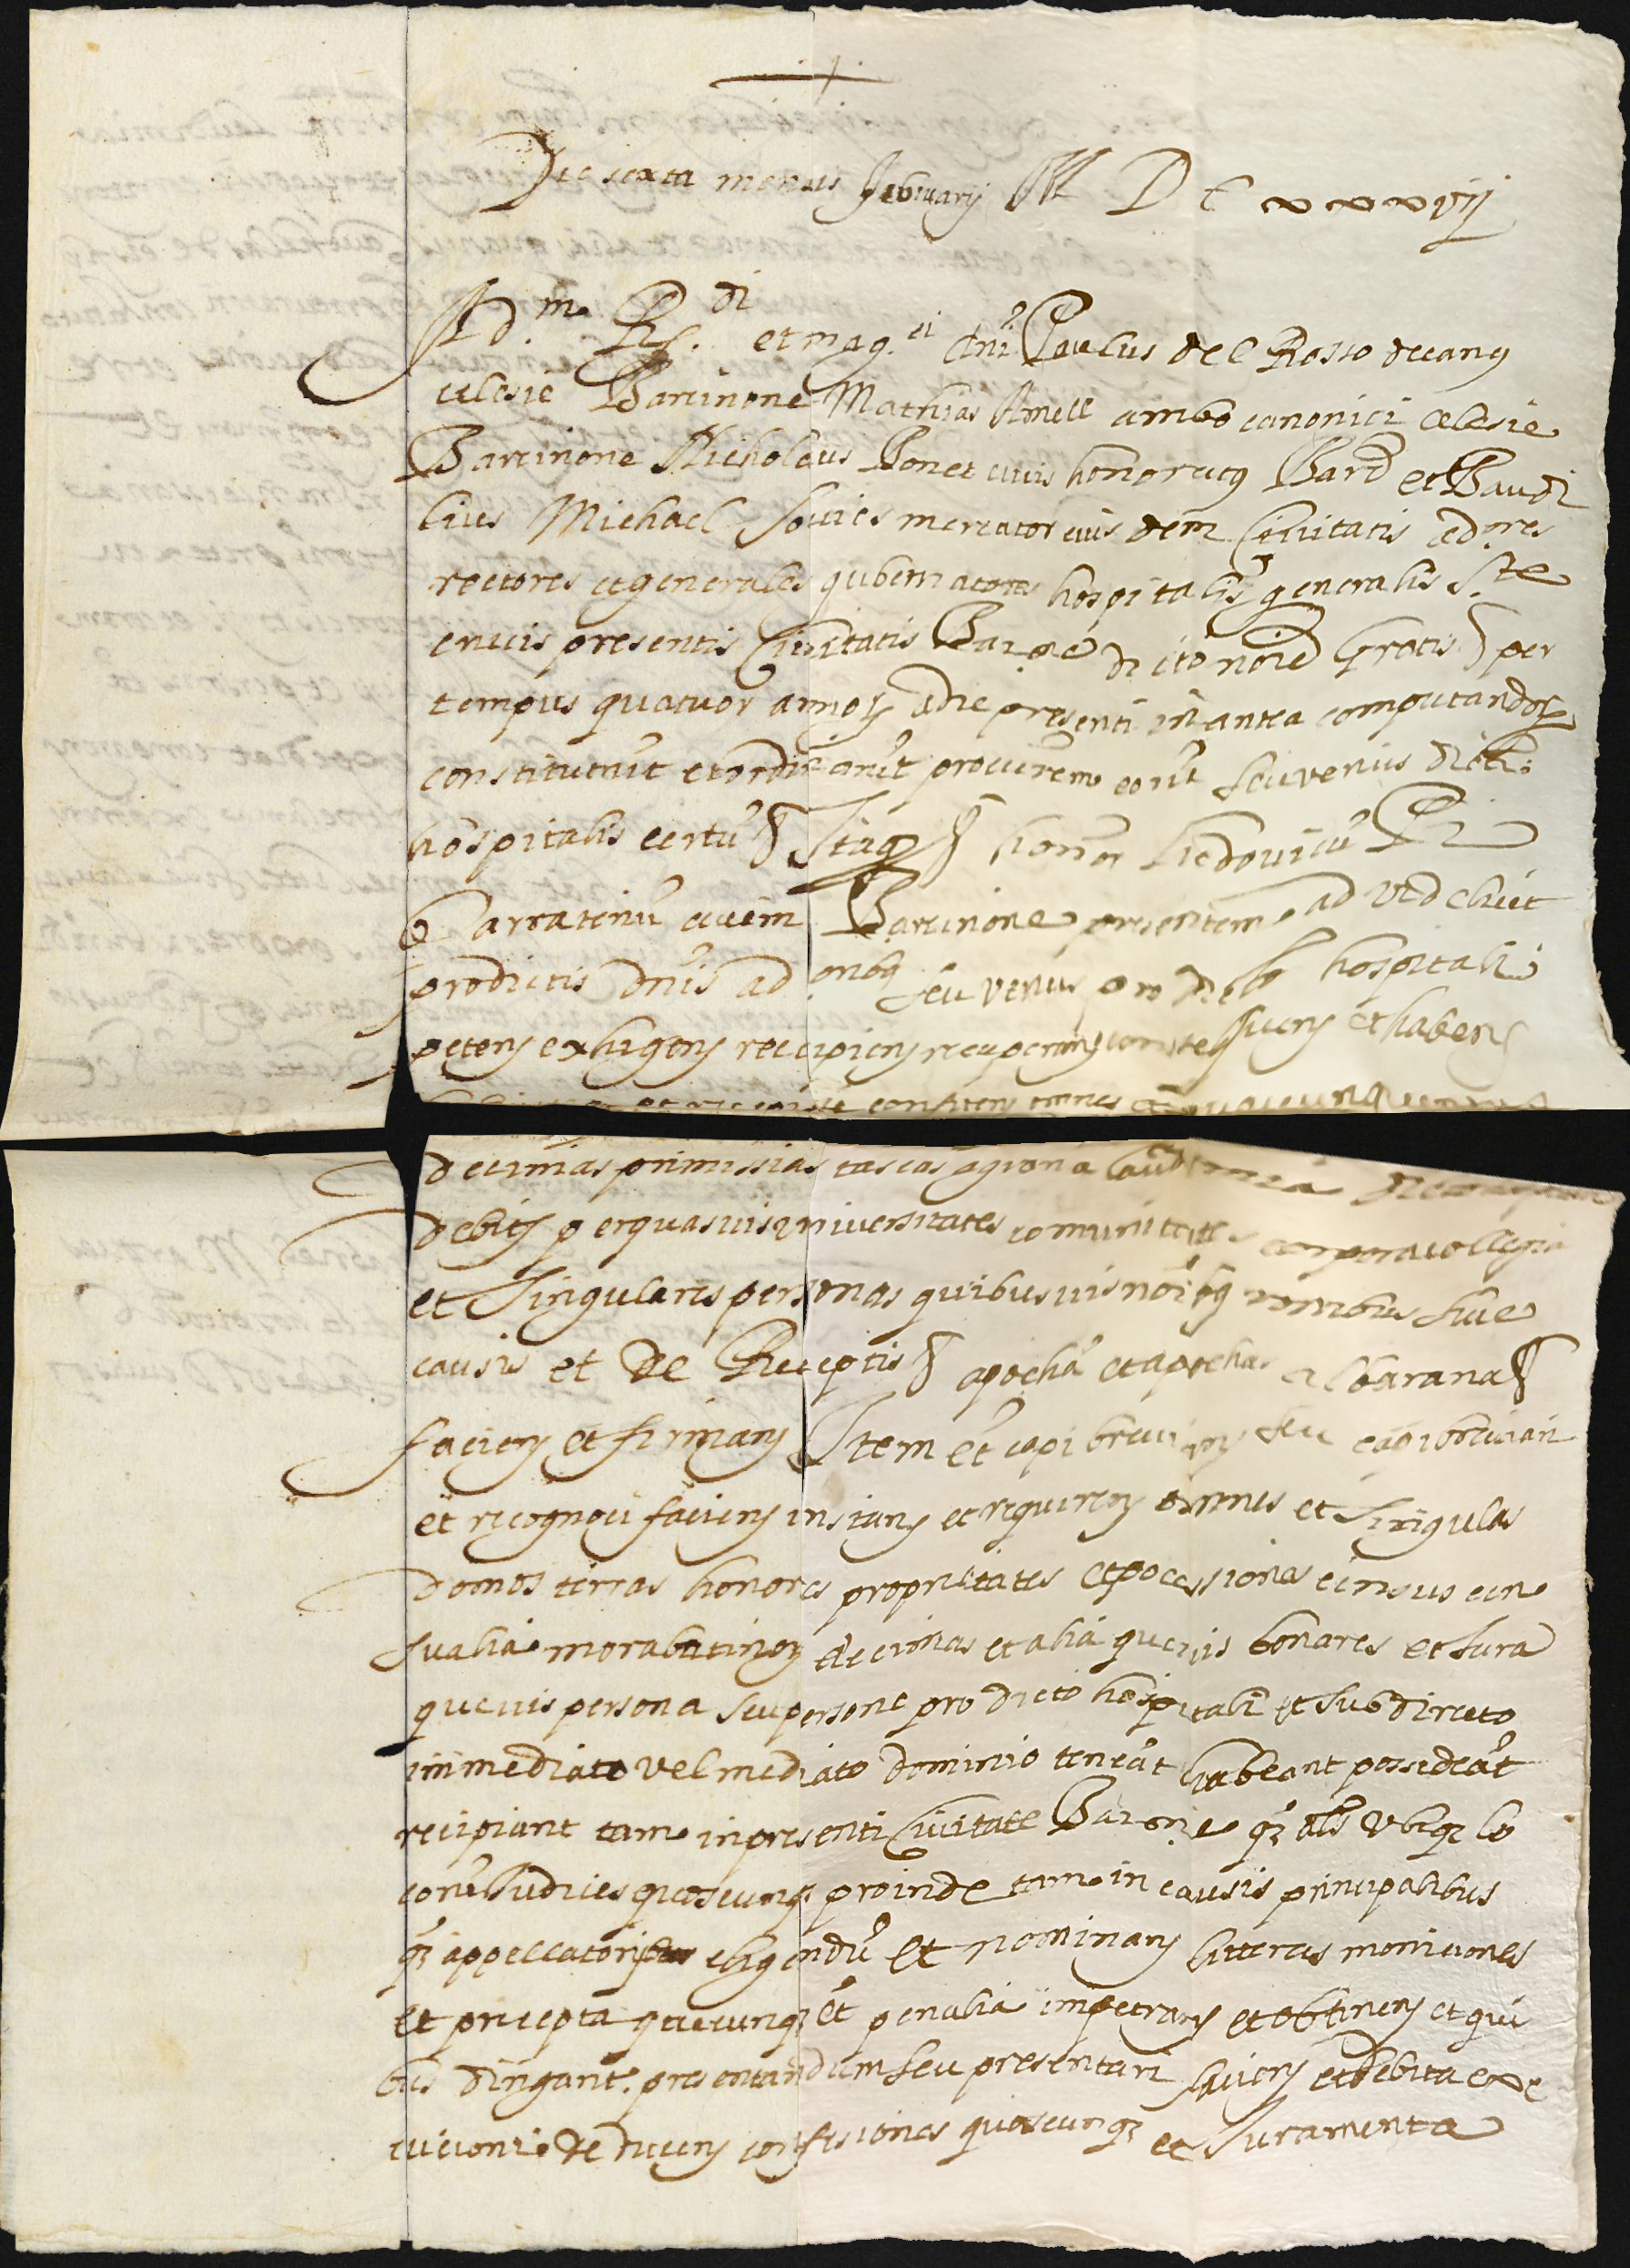 Die sexta mensis februarij M D C xxxvij
Ad.m Rdi. et mag.ci dni Paulus del Rosso decanus
eclesie Barcinone Mathias Amell ambo canonici eclesie
Barcinone Nicholaus Bonet civis honoratus Bard et Baudi
lius Michael Soviés mercator eius dem Civitatis ad.ores
rectores et generales gubernatores hospitalis generalis S.te
crucis presentis Civitatis Barne dicto noie Gratis § per
tempus quatuor annorum a die presenti in antea computandorum
constituerut et ordinarut procurem eorut seu verius dicti
hospitalis certu § Itaq § honor Ludovicu Pi
Carratinu civem Barcinone presentem ad videlicet
predictis dnis ad.onibus seu verius pro dicto hospitali
petens exhigens reccipiens recuperans et habens
et recepisse confitens omnes
decimas primissias tascas agraria
debitis per quasvis universitates comunitates corpora collegia
et Singulares personas quibusvis noibus sive
causis et de Receptis § apocha et apochas albarana §
faciens et firmans Item et capibrevians seu capibreviari
et recognosci faciens instans et requirens omnes et singulas
domos terras honores proprietates et pocessiones census cen
sualia morabatinos decimas et alia quevis bona res et Jura
quevis persona seu persone pro dicto hospitali et sub directo
immediato vel mediato dominio teneat habeant possideat
recipiant tam in presenti Civitate Barne q alis ubique lo
coru Judices quoscunq proinde tam in causis principalibus
q appellatorijs eligendu et nominans litteras moniciones
et precepta quecunq et penalia impetrans et obtinens et qui
bus dirigant. presentandum seu presentari faciens et debita exe
cucioni deducens confesiones quascunq et Juramenta